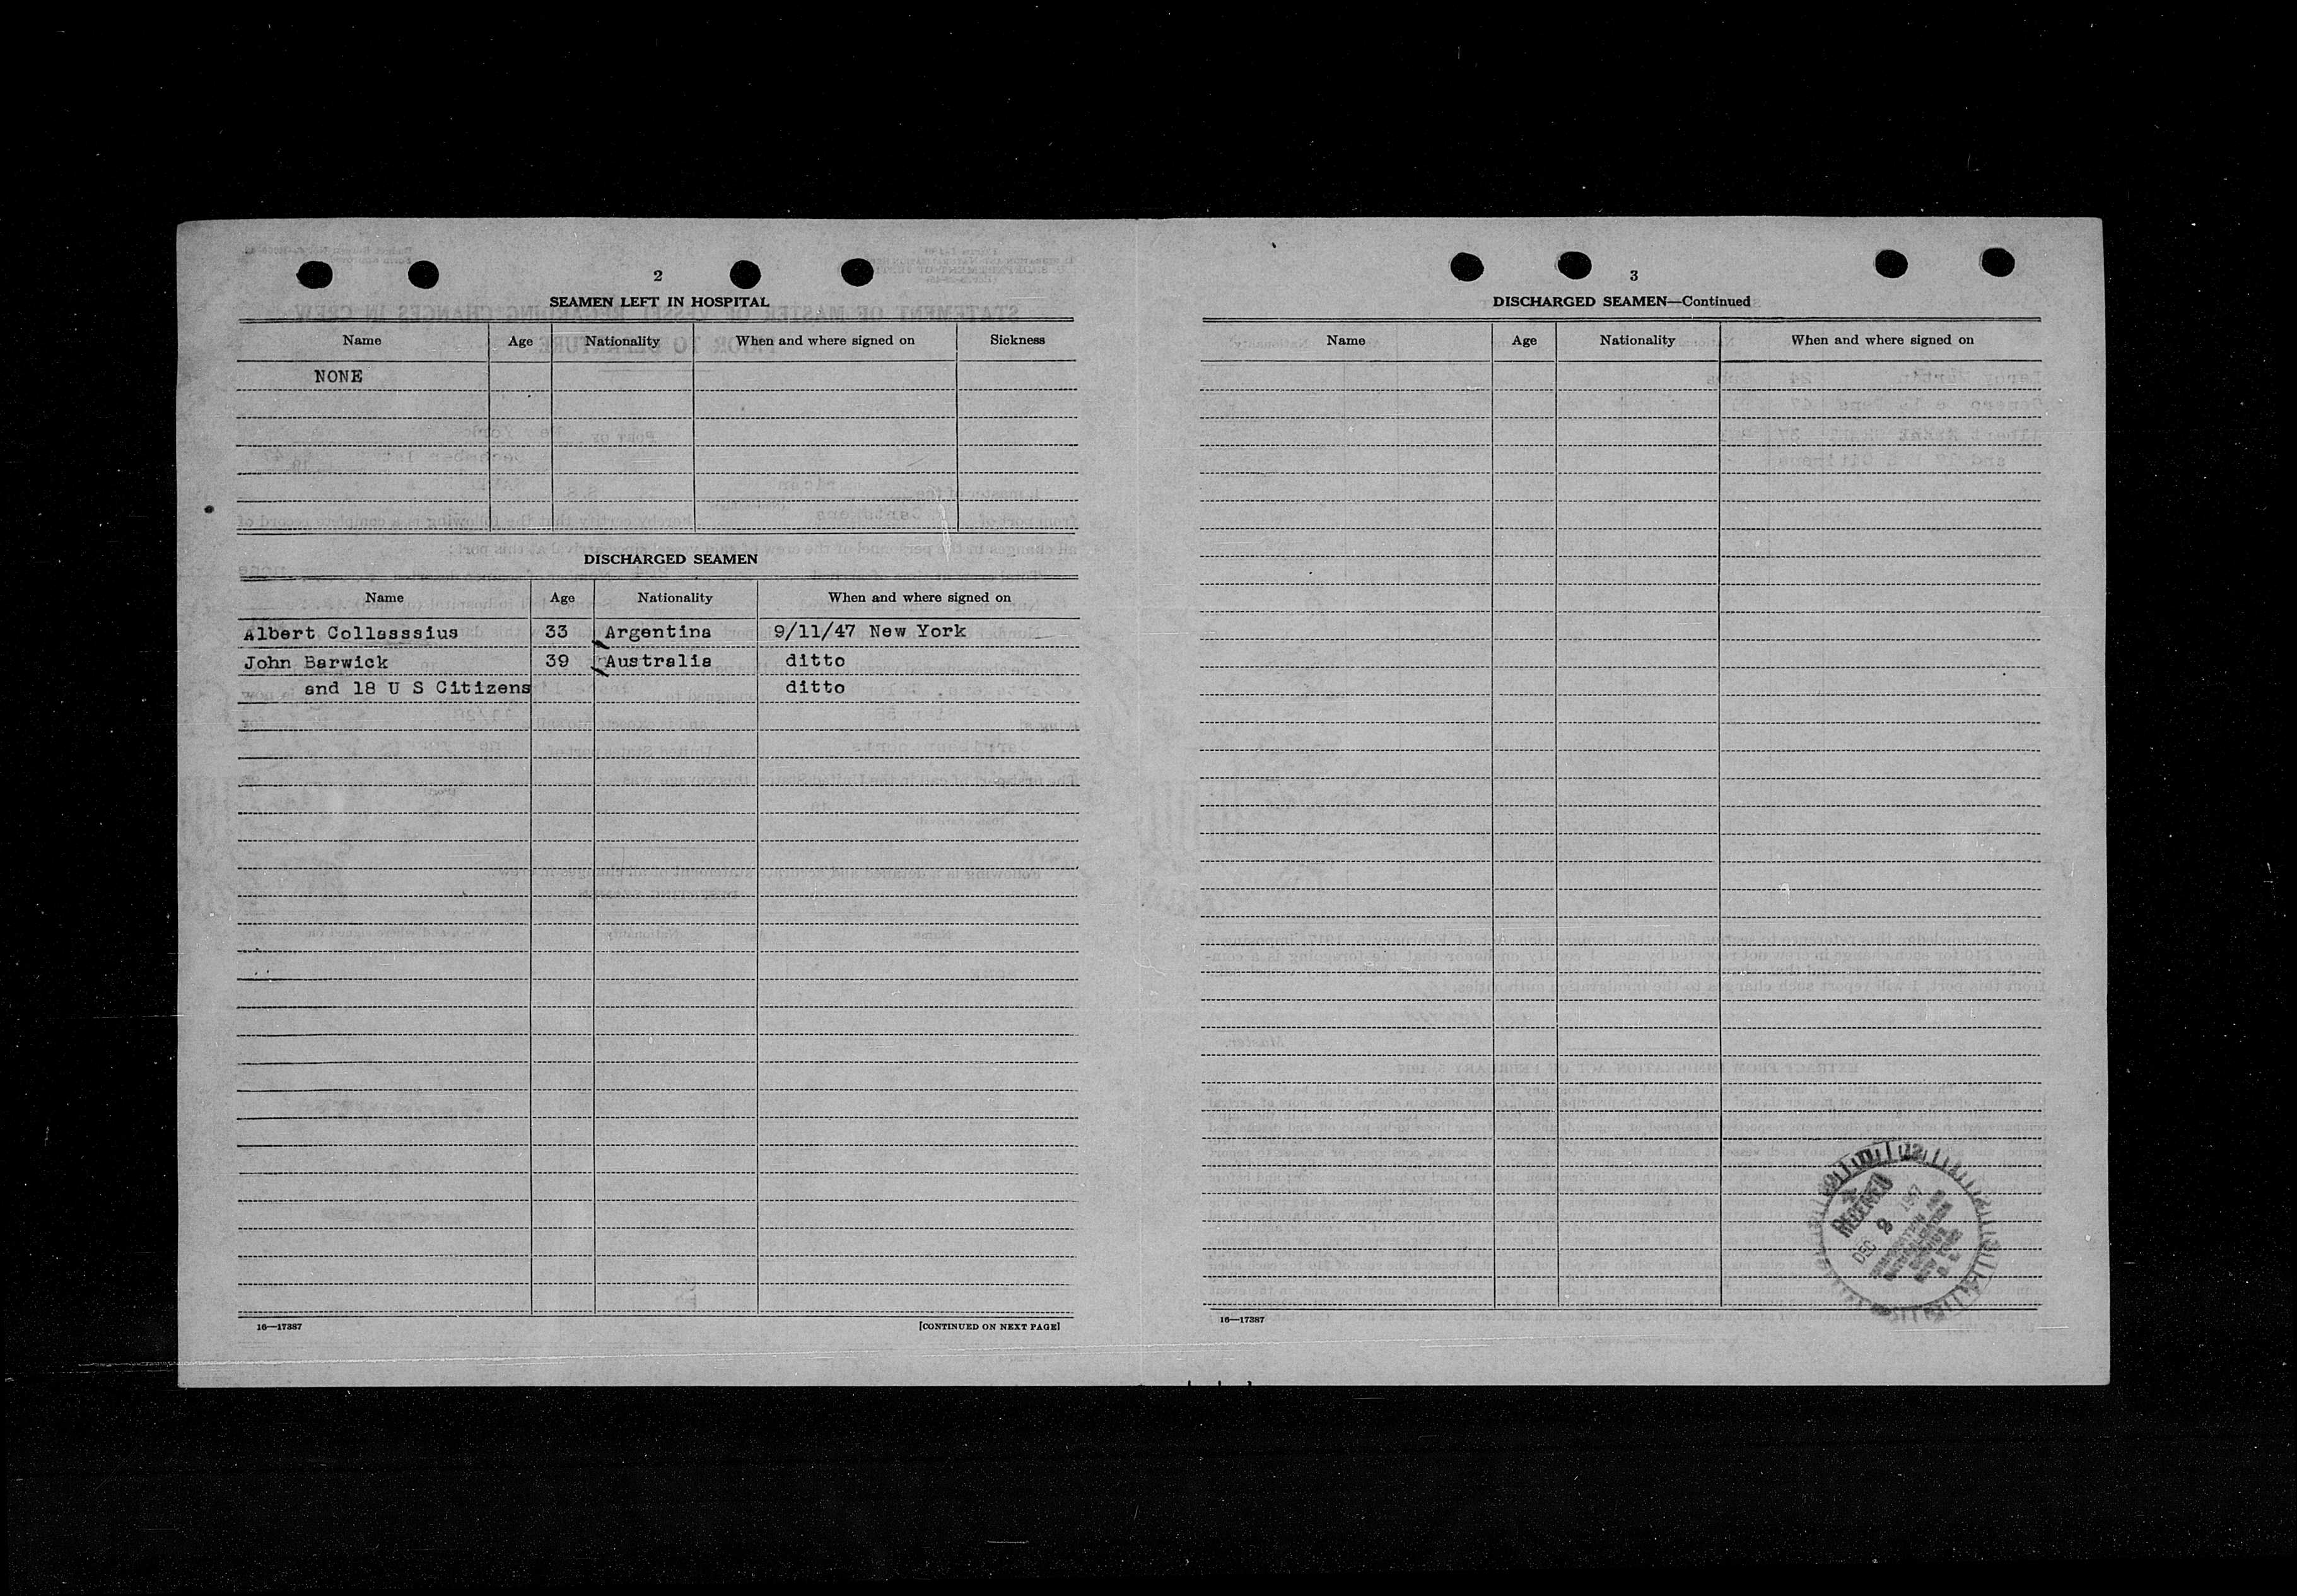 2
SEAMEN LEFT IN HOSPITAL
Name Age Nationality When and where signed on Sickness
NONE
DISCHARGED SEAMEN
Name Age Nationality When and where signed on
Albert Collasssius 33 Argentina 9/11/47 New York
John Barwick 39 Australia ditto
and 18 U S Citizens ditto
16—17387 [CONTINUED ON NEXT PAGE]
3
DISCHARGED SEAMEN—Continued
Name Age Nationality When and where signed on
RECEIVED
DEC 2 1947
IMMIGRATION AND
NATURALIZATION
SERVICE
NEW YORK
16—17387